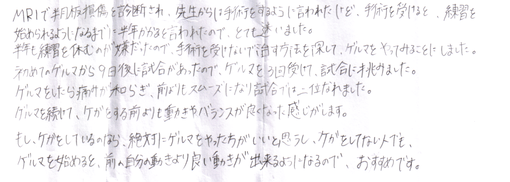 MRIで半月板損傷と診断され、先生からは手術をするように言われたけど、手術を受けると、練習を
始められるようになるまでに半年かかると言われたので、とても迷いました。
半年も練習を休むのが嫌だったので、手術を受けないで治す方法を探して、ゲルマをやってみることにしました。
初めてのゲルマから9日後に試合があったので、ゲルマを3回受けて、試合に挑みました。
ゲルマをしたら痛みが和らぎ、前よりもスムーズになり試合では二位になれました。
ゲルマを続けて、ケガをする前よりも動きやバランスが良くなった感じがします。
もし、ケガをしているのなら、絶対にゲルマをやった方がいいと思うし、ケガをしてない人でも、
ゲルマを始めると、前の自分の動きより良い動きが出来るようになるので、おすすめです。